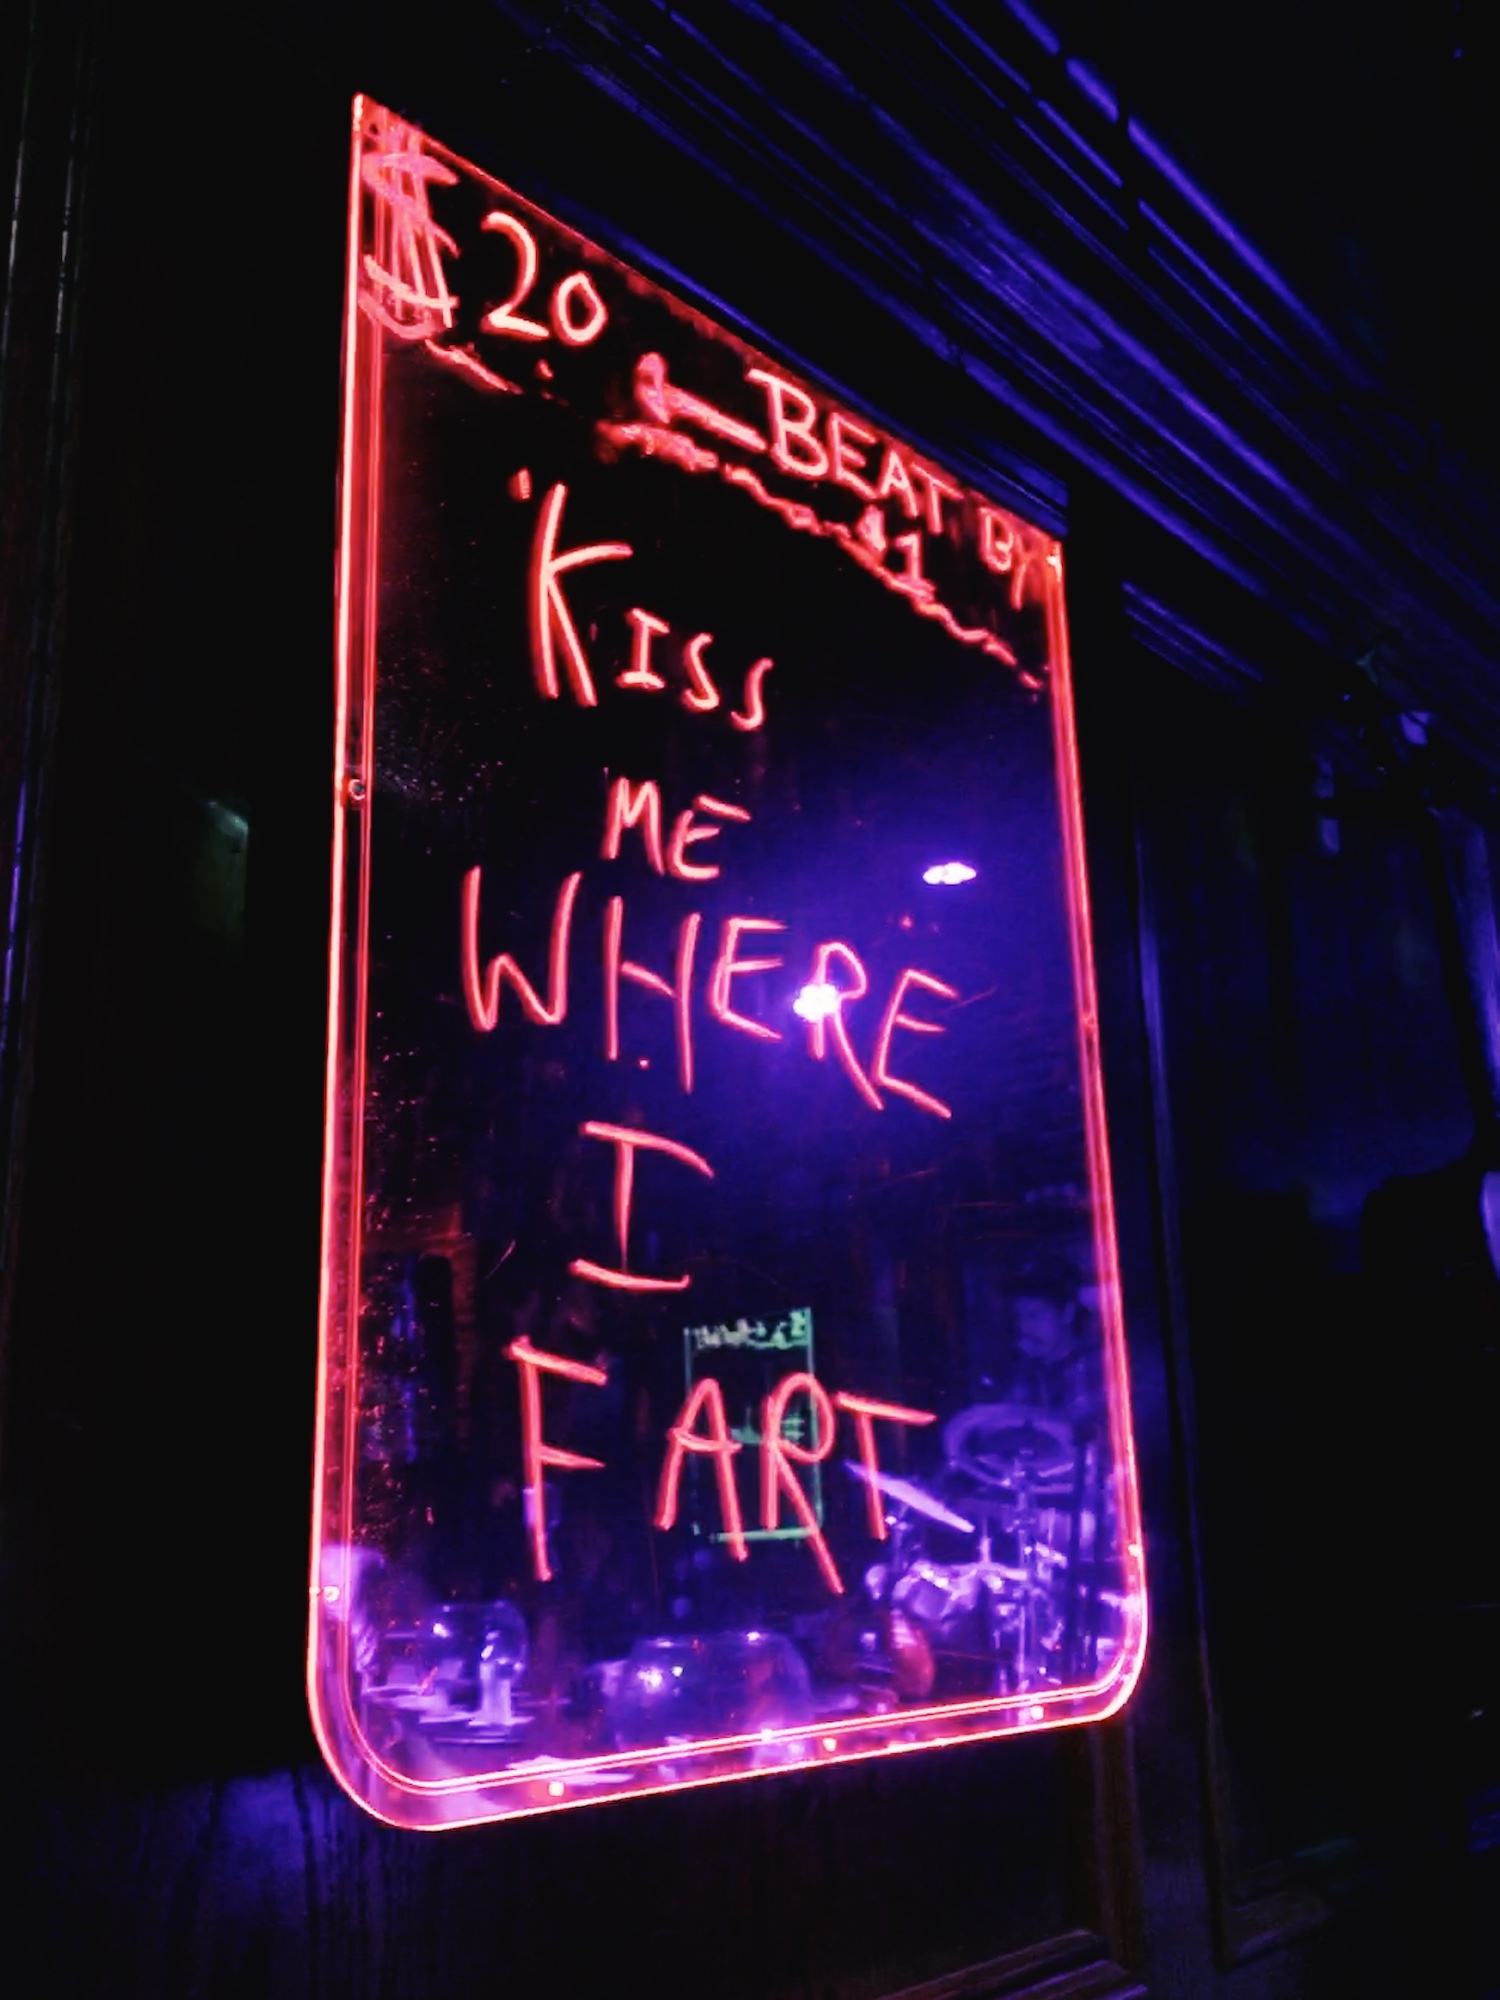 $20
BEAT BY
$1
'KISS
ME
WHERE
I
FART